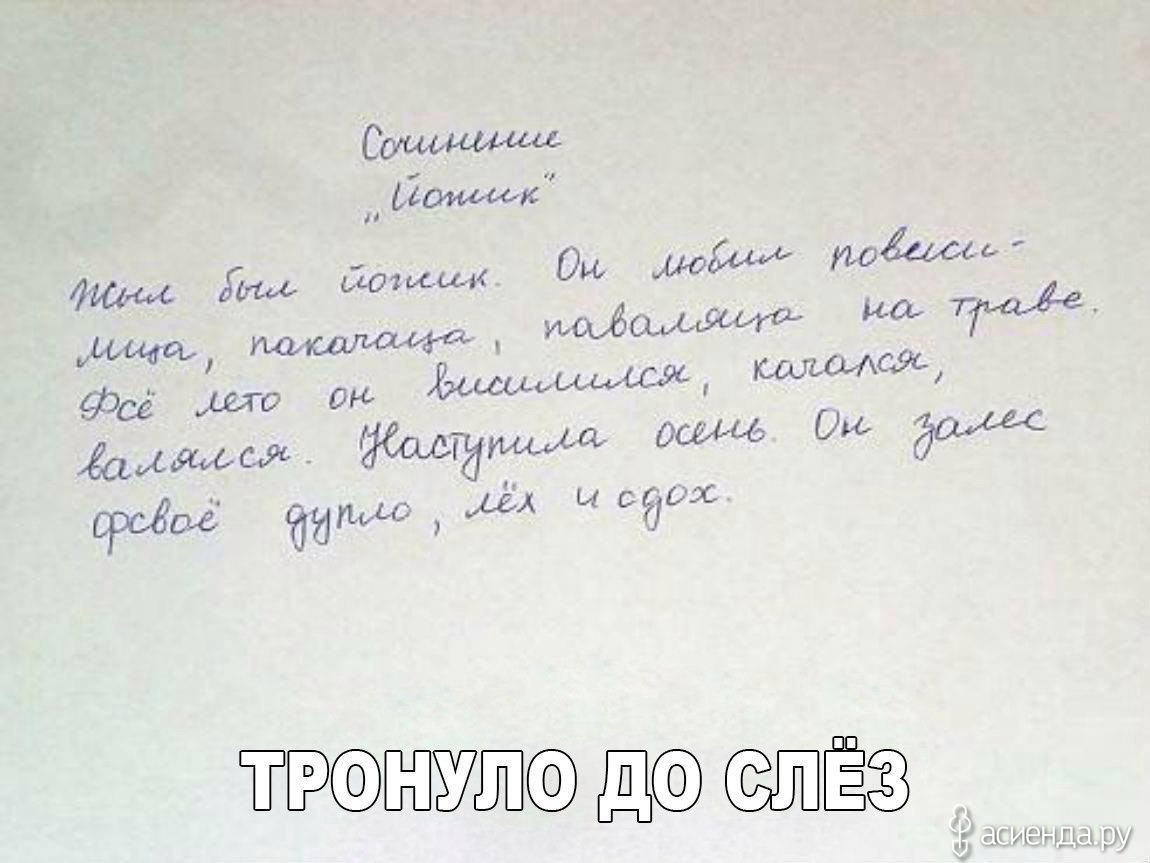 Сочинение
„Йожик"
Жыл был йожик. Он любил повыси-
лица, пакачаца, паваляца на траве.
Фсё лето он висилился, качался,
валялся. Наступила осень. Он залес
фсвоё дупло, лёх и сдох.
ТРОНУЛО ДО СЛЁЗ
асиенда.ру